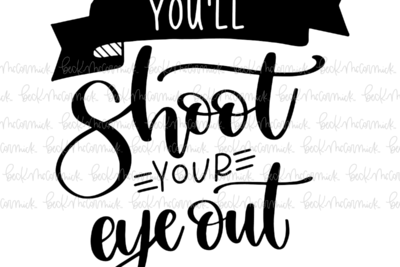 YOU'LL
Shoot
YOUR
eye out